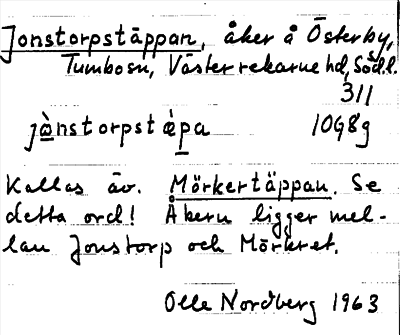 Jonstorpstäppan, åker å Österby,
Tumbosn, Västerrekarne hd, Södl.
311
jà̱nstorpstǽp̱a 10G8g
Kallas äv. Mörkertäppan. Se
detta ord! Åkern ligger mel-
lan Jonstorp och Mörkret.
Olle Nordberg 1963